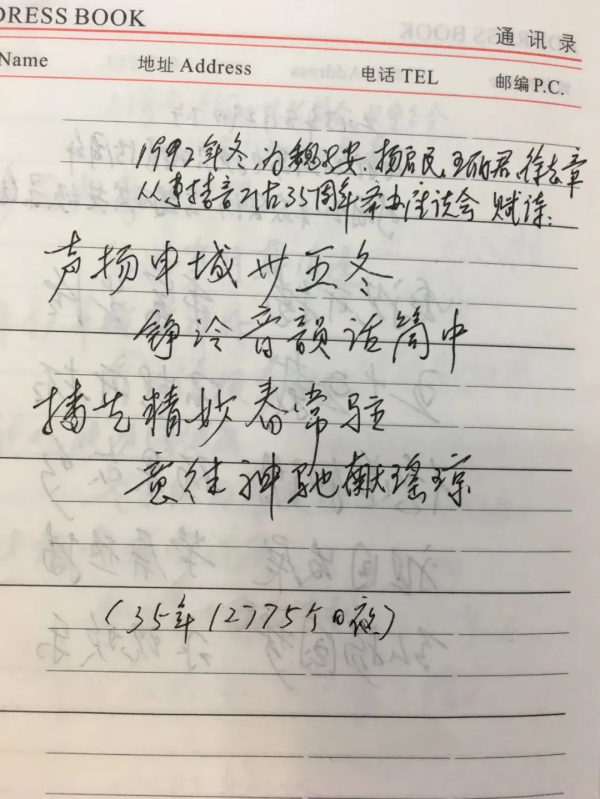 DRESS BOOK
通讯录
Name 地址 Address 电话 TEL 邮编 P.C.
1992年冬,为魏 安、杨启民、王丽君、徐志章
从事播音工作35周年举办座谈会 赋诗:
声扬申城卅五冬
铮泠音韻话筒中
播艺精妙春常驻
意往神驰献瑤琼
(35年12775个日夜)